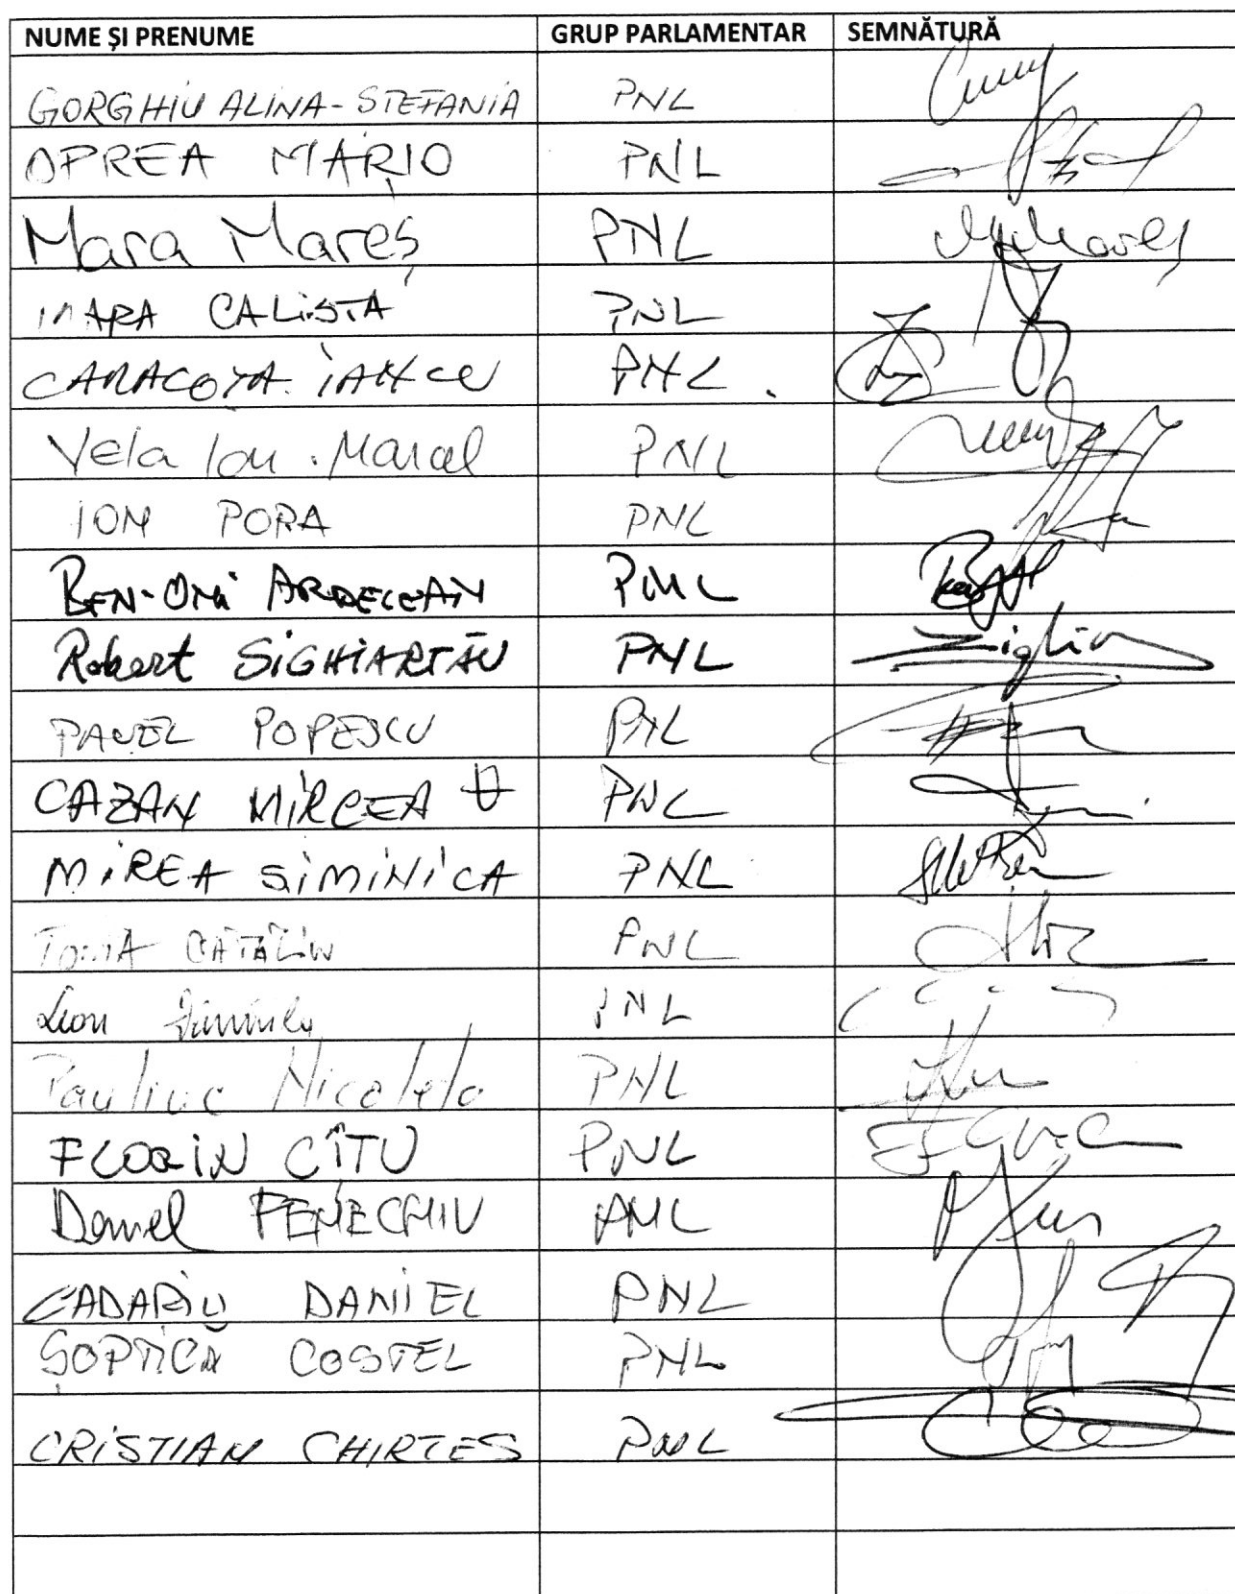 NUME ȘI PRENUME GRUP PARLAMENTAR SEMNĂTURĂ
GORGHIU ALINA-STEFANIA PNL
OPREA MARIO PNL
Mara Mareș PNL
MARA CALISTA PNL
CARACOTA IANCU PNL
Vela Ion Marcel PNL
ION POPA PNL
BEN-ONI ARDELEAN PNL
Robert SIGHIARTĂU PNL
PAVEL POPESCU PNL
CAZAN MIRCEA PNL
MIREA SIMINICA PNL
TOMA CĂTĂLIN PNL
Leon PNL
Pauliuc Nicoleta PNL
FLORIN CÎTU PNL
Daniel FENECHIU PNL
CADARIU DANIEL PNL
ȘOPTICĂ COSTEL PNL
CRISTIAN CHIRTES PNL